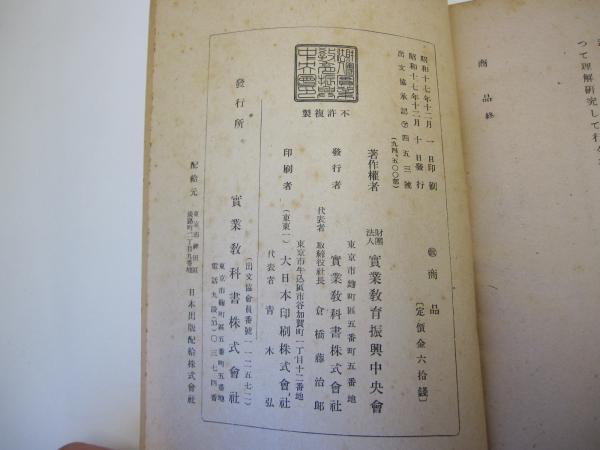 つて理解研究して行
商品終
昭和十七年十二月一日印刷
昭和十七年十二月十日發行
出文協承認㋐四五三號
(九四、五〇〇部)
㊝商品
〔定價金六拾錢〕
著作權者
財團法人
實業敎育振興中央會
東京市麴町區五番町五番地
發行者
實業敎科書株式會社
代表者
取締役社長
倉橋藤治郎
東京市牛込區市谷加賀町一丁目十二番地
印刷者
(東東一)
大日本印刷株式會社
代表者
靑木弘
不許複製
發行所
(出文協會員番號一一二五七二)
實業敎科書株式會社
東京市麴町區五番町五番地
電話九段(33)〇三七四番
配給元
東京市神田區
淡路町二丁目九番地
日本出版配給株式會社